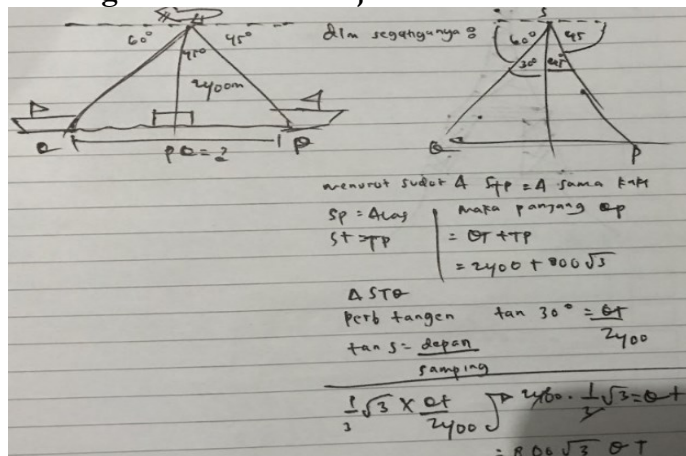 60° 45° 45°
2400m
Q P
PQ = ?
dlm segitiganya :
S
60° 45
30° 45
Q P
menurut sudut Δ STP = Δ sama kaki
SP = Alas
ST = TP
maka panjang QP
= QT + TP
= 2400 + 800√3
Δ STQ
Perb tangen tan 30° = QT / 2400
tan S = depan / samping
1/3 √3 × QT / 2400 2400 . 1/3 √3 = QT
= 800√3 QT